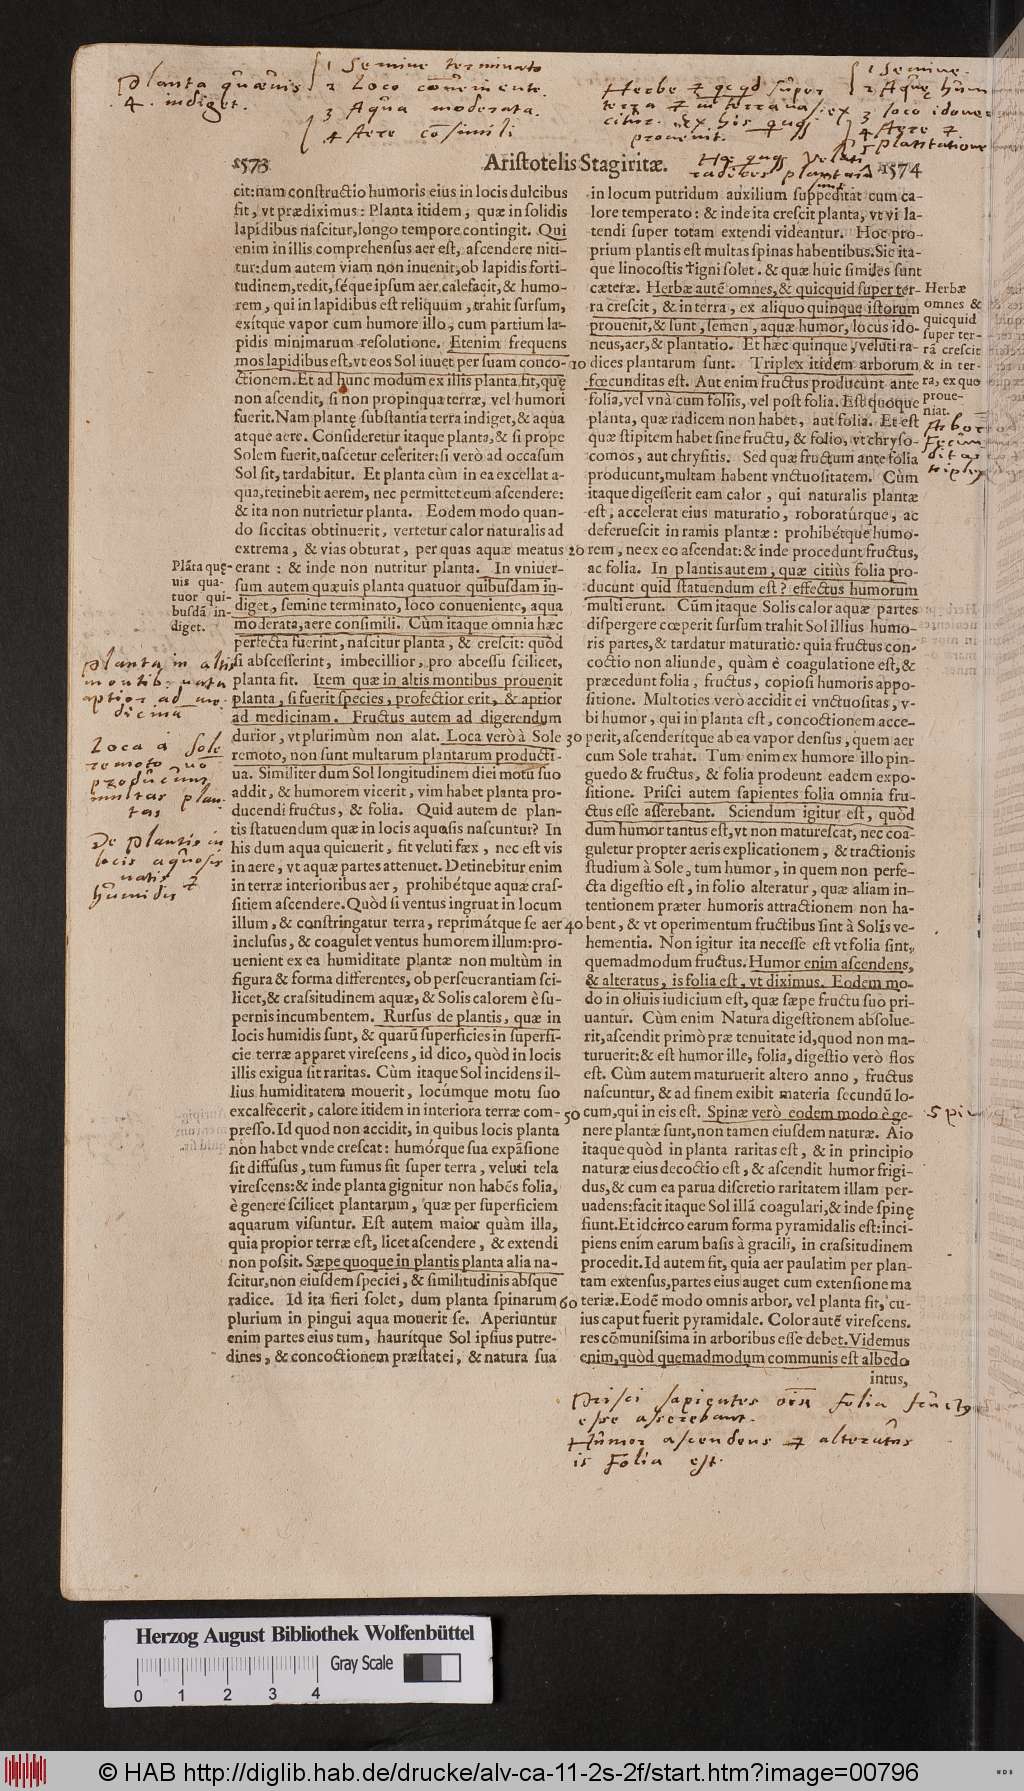 Planta quævis
4. indiget.
1 Semine terminato
2 Loco conveniente
3 Aqua moderata.
4 Aere consimili
Herbe et qcqd super
terra et in terra nascitur. ex
his quinque
provenit.
1 Semine.
2 Aquę hum
3 loco idoneo
4 Aere et
5 plantatione
Hæ quinque veluti
radices plantarum sunt
1573
Aristotelis Stagiritæ.
1574
cit: nam constructio humoris eius in locis dulcibus
fit, vt prædiximus: Planta itidem, quæ in solidis
lapidibus nascitur, longo tempore contingit. Qui
enim in illis comprehensus aer est, ascendere niti-
tur: dum autem viam non inuenit, ob lapidis forti-
tudinem, redit, séque ipsum aer calefacit, & humo-
rem, qui in lapidibus est reliquum, trahit sursum,
exítque vapor cum humore illo, cum partium la-
pidis minimarum resolutione. Etenim frequens
mos lapidibus est, vt eos Sol iuuet per suam conco-
ctionem. Et ad hunc modum ex illis planta fit, quę
non ascendit, si non propinqua terræ, vel humori
fuerit. Nam plantę substantia terra indiget, & aqua
atque aere. Consideretur itaque planta, & si prope
Solem fuerit, nascetur celeriter: si verò ad occasum
Sol sit, tardabitur. Et planta cùm in ea excellat a-
qua, retinebit aerem, nec permittet eum ascendere:
& ita non nutrietur planta. Eodem modo quan-
do siccitas obtinuerit, vertetur calor naturalis ad
extrema, & vias obturat, per quas aquæ meatus
erant: & inde non nutritur planta. In vniuer-
sum autem quæuis planta quatuor quibusdam in-
diget, semine terminato, loco conueniente, aqua
moderata, aere consimili. Cùm itaque omnia hæc
perfecta fuerint, nascitur planta, & crescit: quòd
si abscesserint, imbecillior, pro abcessu scilicet,
planta fit. Item quæ in altis montibus prouenit
planta, si fuerit species, profectior erit, & aptior
ad medicinam. Fructus autem ad digerendum
durior, vt plurimùm non alat. Loca verò à Sole
remoto, non sunt multarum plantarum producti-
ua. Similiter dum Sol longitudinem diei motu suo
addit, & humorem vicerit, vim habet planta pro-
ducendi fructus, & folia. Quid autem de plan-
tis statuendum quæ in locis aquosis nascuntur? In
his dum aqua quieuerit, fit veluti fæx, nec est vis
in aere, vt aquæ partes attenuet. Detinebitur enim
in terræ interioribus aer, prohibétque aquæ cras-
sitiem ascendere. Quòd si ventus ingruat in locum
illum, & constringatur terra, reprimátque se aer
inclusus, & coagulet ventus humorem illum: pro-
uenient ex ea humiditate plantæ non multùm in
figura & forma differentes, ob perseuerantiam sci-
licet, & crassitudinem aquæ, & Solis calorem è su-
pernis incumbentem. Rursus de plantis, quæ in
locis humidis sunt, & quarū superficies in superfi-
cie terræ apparet virescens, id dico, quòd in locis
illis exigua sit raritas. Cùm itaque Sol incidens il-
lius humiditatem mouerit, locúmque motu suo
excalfecerit, calore itidem in interiora terræ com-
presso. Id quod non accidit, in quibus locis planta
non habet vnde crescat: humórque sua expāsione
sit diffusus, tum fumus fit super terra, veluti tela
virescens: & inde planta gignitur non habēs folia,
è genere scilicet plantarum, quæ per superficiem
aquarum visuntur. Est autem maior quàm illa,
quia propior terræ est, licet ascendere, & extendi
non possit. Sæpe quoque in plantis planta alia na-
scitur, non eiusdem speciei, & similitudinis absque
radice. Id ita fieri solet, dum planta spinarum
plurium in pingui aqua mouerit se. Aperiuntur
enim partes eius tum, hauritque Sol ipsius putre-
dines, & concoctionem præstat ei, & natura sua
Plāta quę-
uis qua-
tuor qui-
busdā in-
diget.
planta in altis
montib: nata
aptior ad me-
dicina
Loca à sole
remoto nō
producunt
multas plan-
tas
De plantis in
locis aquosis
natis et
humidis
10
20
30
40
50
60
in locum putridum auxilium suppeditat cum ca-
lore temperato: & inde ita crescit planta, vt vi la-
tendi super totam extendi videantur. Hoc pro-
prium plantis est multas spinas habentibus. Sic ita-
que linocostis tigni solet. & quæ huic similes sunt
cæteræ. Herbæ autē omnes, & quicquid super ter-
ra crescit, & in terra, ex aliquo quinque istorum
prouenit, & sunt, semen, aquæ humor, locus ido-
neus, aer, & plantatio. Et hæc quinque, veluti ra-
dices plantarum sunt. Triplex itidem arborum
fœcunditas est. Aut enim fructus producunt ante
folia, vel vnà cum foliis, vel post folia. Est quoque
planta, quæ radicem non habet, aut folia. Et est
quæ stipitem habet sine fructu, & folio, vt chryso-
comos, aut chrysitis. Sed quæ fructum ante folia
producunt, multam habent vnctuositatem. Cùm
itaque digesserit eam calor, qui naturalis plantæ
est, accelerat eius maturatio, roboratúrque, ac
deferuescit in ramis plantæ: prohibétque humo-
rem, ne ex eo ascendat: & inde procedunt fructus,
ac folia. In plantis autem, quæ citiùs folia pro-
ducunt quid statuendum est? effectus humorum
multi erunt. Cùm itaque Solis calor aquæ partes
dispergere cœperit sursum trahit Sol illius humo-
ris partes, & tardatur maturatio: quia fructus con-
coctio non aliunde, quàm è coagulatione est, &
præcedunt folia, fructus, copiosi humoris appo-
sitione. Multoties verò accidit ei vnctuositas, v-
bi humor, qui in planta est, concoctionem acce-
perit, ascenderítque ab ea vapor densus, quem aer
cum Sole trahat. Tum enim ex humore illo pin-
guedo & fructus, & folia prodeunt eadem expo-
sitione. Prisci autem sapientes folia omnia fru-
ctus esse asserebant. Sciendum igitur est, quòd
dum humor tantus est, vt non maturescat, nec coa-
guletur propter aeris explicationem, & tractionis
studium à Sole, tum humor, in quem non perfe-
cta digestio est, in folio alteratur, quæ aliam in-
tentionem præter humoris attractionem non ha-
bent, & vt operimentum fructibus sint à Solis ve-
hementia. Non igitur ita necesse est vt folia sint,
quemadmodum fructus. Humor enim ascendens,
& alteratus, is folia est, vt diximus. Eodem mo-
do in oliuis iudicium est, quæ sæpe fructu suo pri-
uantur. Cùm enim Natura digestionem absolue-
rit, ascendit primò præ tenuitate id, quod non ma-
turuerit: & est humor ille, folia, digestio verò flos
est. Cùm autem maturuerit altero anno, fructus
nascuntur, & ad finem exibit materia secundū lo-
cum, qui in eis est. Spinæ verò eodem modo è ge-
nere plantæ sunt, non tamen eiusdem naturæ. Aio
itaque quòd in planta raritas est, & in principio
naturæ eius decoctio est, & ascendit humor frigi-
dus, & cum ea parua discretio raritatem illam per-
uadens: facit itaque Sol illā coagulari, & inde spinę
fiunt. Et idcirco earum forma pyramidalis est: inci-
piens enim earum basis à gracili, in crassitudinem
procedit. Id autem fit, quia aer paulatim per plan-
tam extensus, partes eius auget cum extensione ma
teriæ. Eodē modo omnis arbor, vel planta fit, cu-
ius caput fuerit pyramidale. Color autē virescens.
res cōmunissima in arboribus esse debet. Videmus
enim, quòd quemadmodum communis est albedo
intus,
Herbæ
omnes &
quicquid
super ter-
rā crescit
& in ter-
ra, ex quo
proue-
niat.
Arbor
Fecun
ditas
triplex
Spi
Prisci sapientes omnia folia fructus
esse asserebant.
Humor ascendens et alteratus
is folia est.
Herzog August Bibliothek Wolfenbüttel
Gray Scale
0 1 2 3 4
© HAB http://diglib.hab.de/drucke/alv-ca-11-2s-2f/start.htm?image=00796